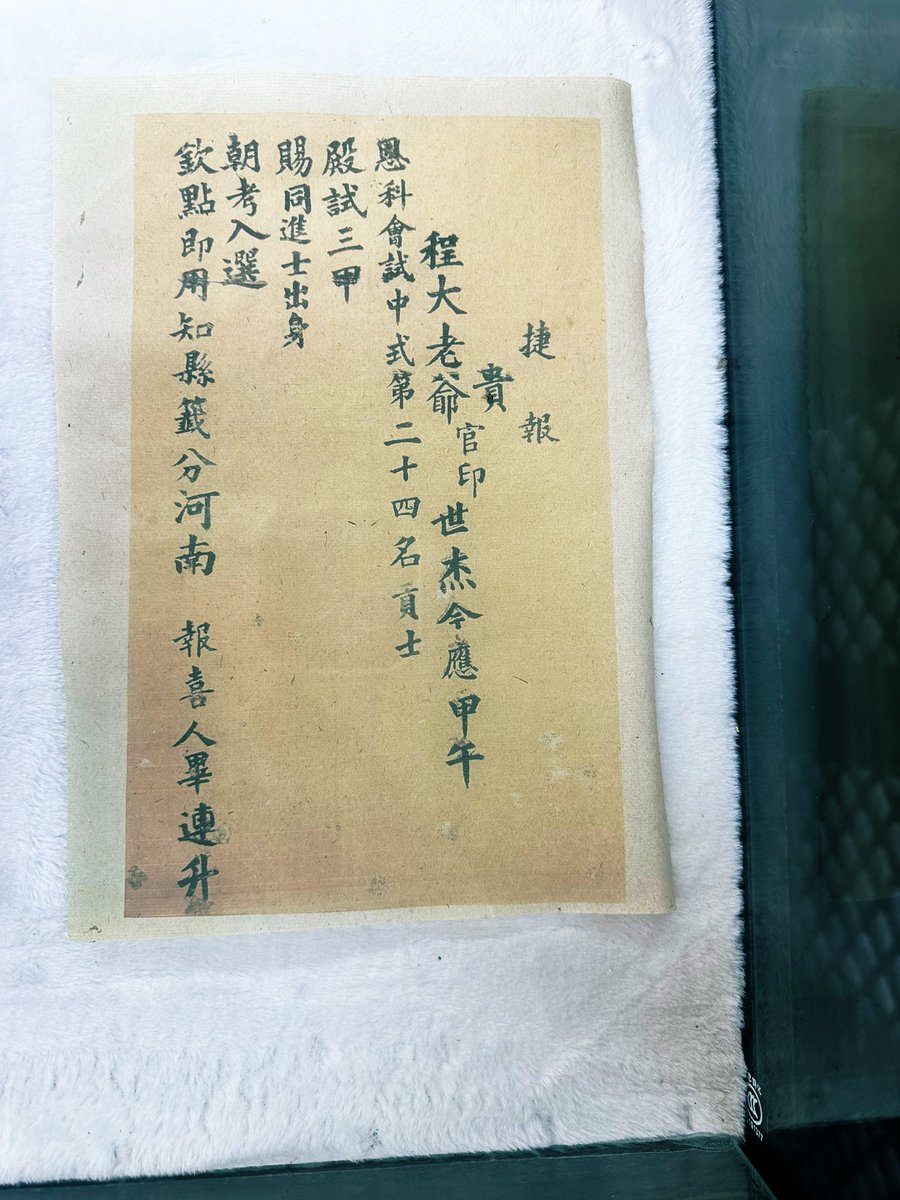 捷報
貴
程大老爺官印世杰今應甲午
恩科會試中式第二十四名貢士
殿試三甲
賜同進士出身
朝考入選
欽點即用知縣籤分河南 報喜人畢連升